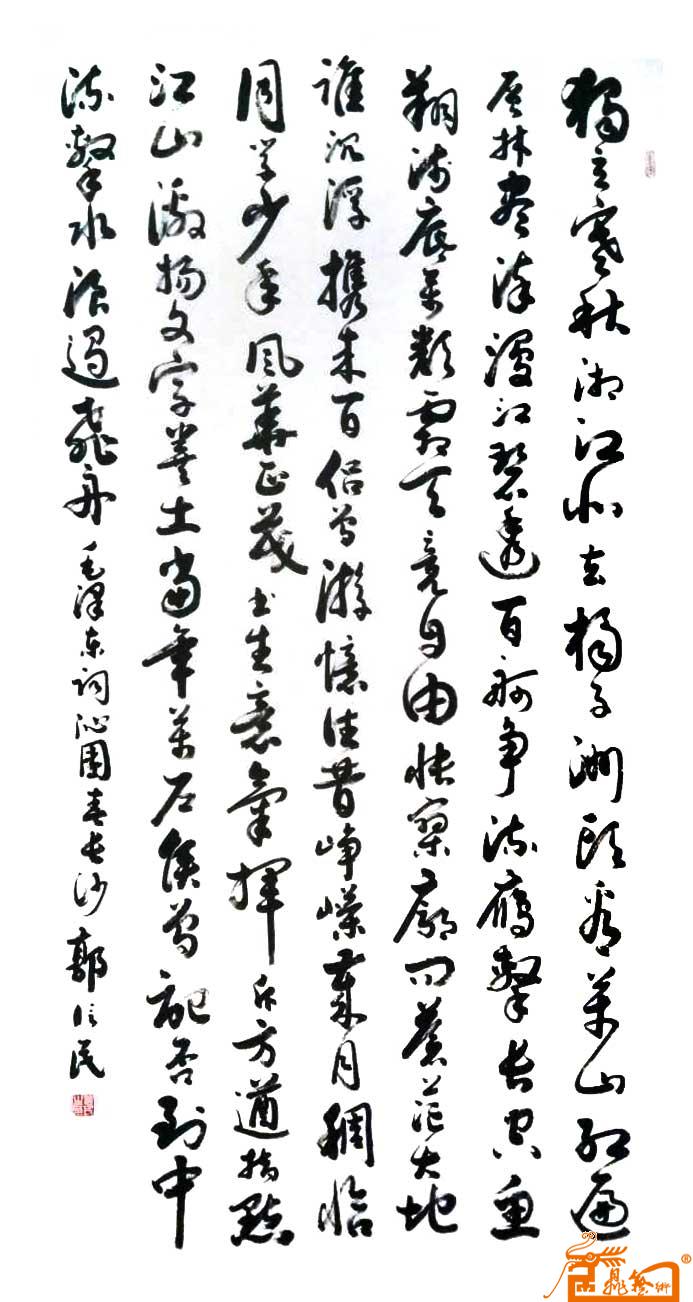 獨立寒秋湘江北去橘子洲头看萬山红遍
层林尽染漫江碧透百舸争流鹰擊长空鱼
翔浅底萬類霜天竞自由怅寥廓问蒼茫大地
谁沉浮携来百侣曾游憶往昔峥嵘歲月稠恰
同学少年风華正茂书生意氣揮斥方遒指點
江山激扬文字粪土当年萬户侯曾記否到中
流擊水浪遏飛舟 毛泽东词沁园春长沙 郭信民